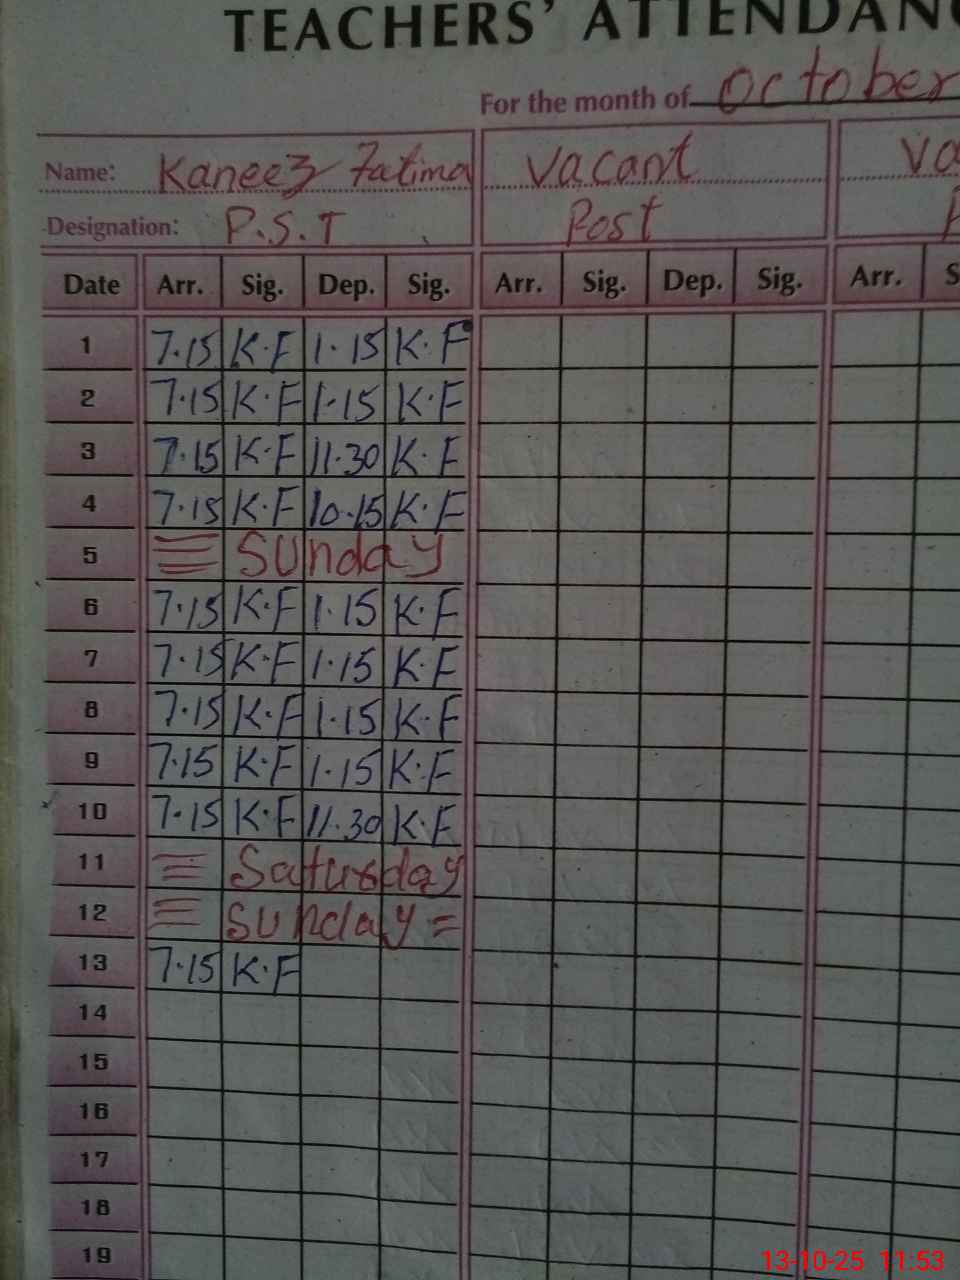 TEACHERS' ATTENDANC
For the month of October
Name: Kaneez Fatima Vacant Va
Designation: P.S.T Post P
Date Arr. Sig. Dep. Sig. Arr. Sig. Dep. Sig. Arr. S
1 7.15 K.F 1.15 K.F
2 7.15 K.F 1.15 K.F
3 7.15 K.F 11.30 K.F
4 7.15 K.F 10.15 K.F
5 Sunday
6 7.15 K.F 1.15 K.F
7 7.15 K.F 1.15 K.F
8 7.15 K.F 1.15 K.F
9 7.15 K.F 1.15 K.F
10 7.15 K.F 11.30 K.F
11 Saturday
12 Sunday =
13 7.15 K.F
14
15
16
17
18
19
13-10-25 11:53